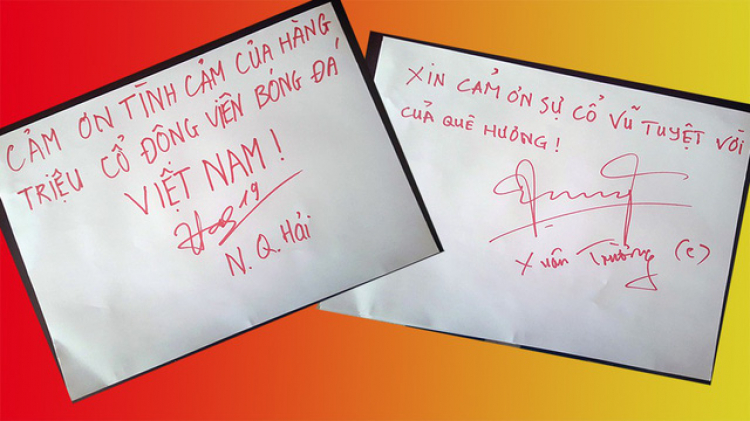 CẢM ƠN TÌNH CẢM CỦA HÀNG
TRIỆU CỔ ĐỘNG VIÊN BÓNG ĐÁ
VIỆT NAM!
19
N. Q. Hải
XIN CẢM ƠN SỰ CỔ VŨ TUYỆT VỜI
CỦA QUÊ HƯƠNG!
Xuân Trường (c)